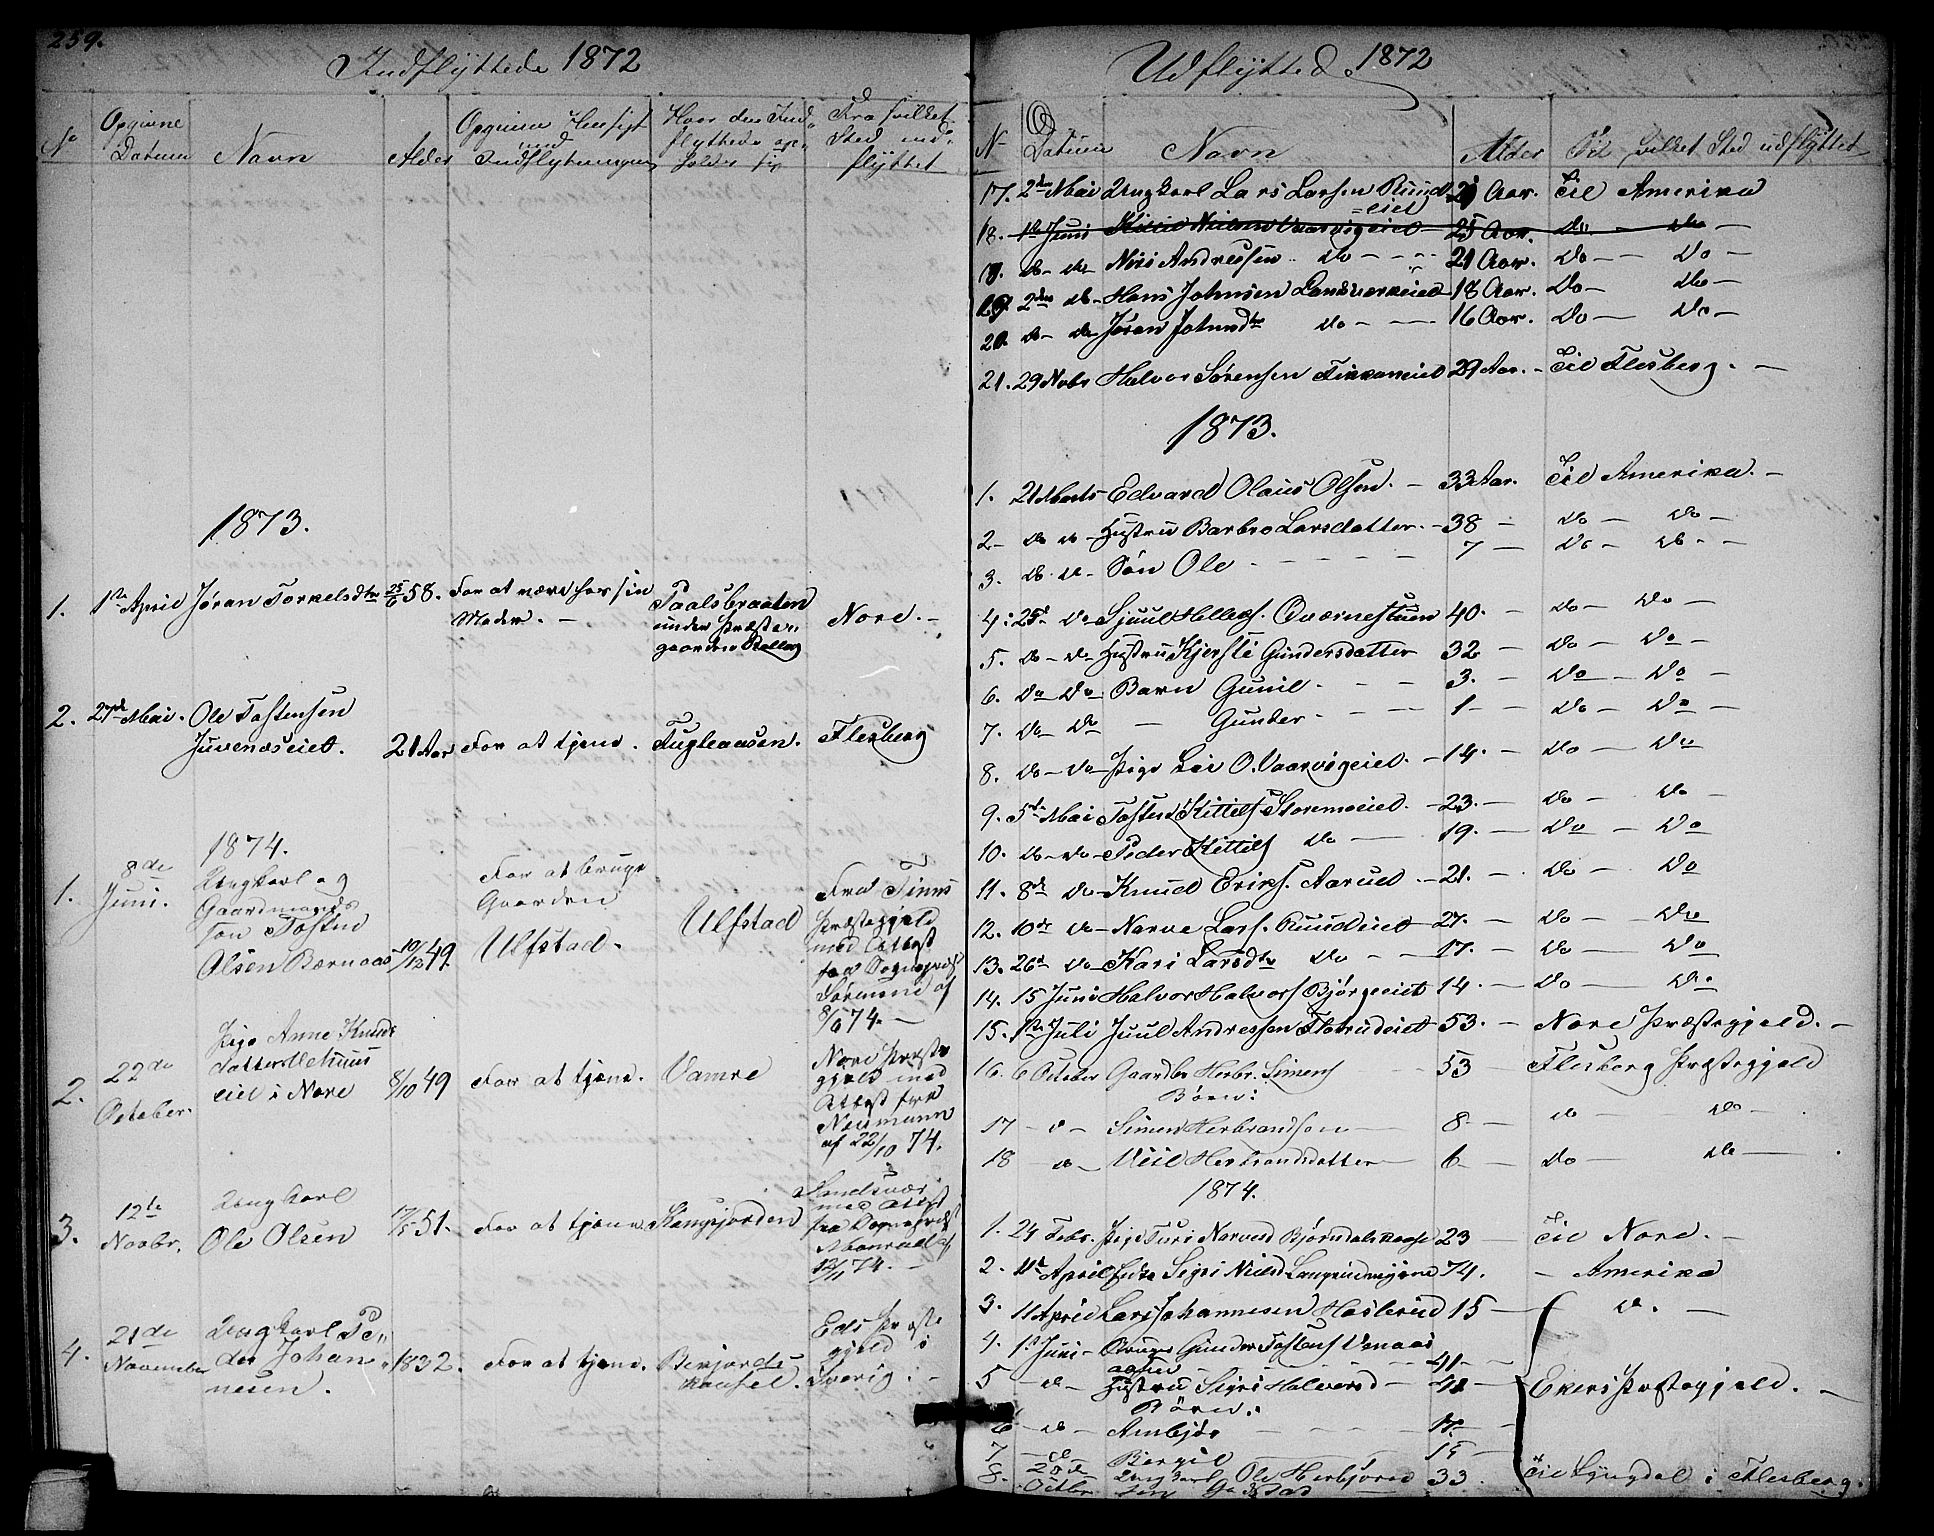 259.
Indflyttede 1872
No
Opgivne Datum
Navn
Alder
Opgiven Hensigt med Indflytningen
Hvor den Indflyttede opholder sig
Fra hvilket Sted indflyttet
1873.
1. 1ste April Jøran Torkelsdtr 25/6 58. For at være hos sin
Moder. –
Paalsbraaten
under Præste-
gaarden Rollag
Nore. –
2. 27de Mai. Ole Tostensen
Juvenæseiet. 21 Aar For at tjene. Fugleaasen. Flesberg
1874.
1. 8de Juni.
Ungkarl og
Gaardmands
søn Tosten
Olsen Bærnaas 10/12 49.
For at bruge
Gaarden
Ulfstad.
Ulfstad
Fra Tinns
Præstegjeld
med Attest
fra Sognepræst
af
8/6 74. –
2. 22de October.
Pige Anne Knuds
datter
eiet i Nore 8/10 49 For at tjene. Vamre
Nore Præste
gjeld med
Attest fra
Neumann
af 22/10 74.
3. 12te Novbr.
Ungkarl
Ole Olsen 17/5 51. For at tjene Kongsjorden
Sandsvær
med Attest
fra Sognepræst
12/11 74. –
4. 21de November
Ungkarl Pe-
der Johan-
nesen. 1832. For at tjene. Berjords-
Eds Præste
gjeld i
Sverig. –
Udflyttede 1872
N
Datum
Navn
Alder
Til hvilket Sted udflyttet
17. 2den Mai Ungkarl Lars Larsen Ruud
=eiet 21 Aar. Til Amerika
18. 1ste Juni Nielsen Vaarvigeiet 25 Aar. do – do –
18. do – do – Niri Andressen do – 21 Aar. do – do –
19. 2den do – Hans Johnsen Landsverkeiet 18 Aar. Do – do –
20. do – do Jøran Johnsdtr do – 16 Aar. Do – Do –
21. 29 Nobr Halvor Sørensen Tinnaneiet 29 Aar. – Til Flesberg. –
1873.
1. 21 Marts – Edvard Olaus Olsen. – 33 Aar. Til Amerika. –
2 – do do – Hustru Barbro Larsdatter. – 38 – do – do –
3. do. do – Søn Ole – 7 – do – do –
4. 25d do – Sjuul Hellecs. Qværnestuen 40. – do – do –
5. do – do – Hustru Kjersti Gundersdatter 32 – do – do –
6. do do – Barn Gunil. – 3. – do – do –
7. do do – Gunder – 1 – do – do –
8. do – do – Pige Live O. Vaarvigeiet. – 14. – do – do
9. 5te Mai Tosten Kittils. Storemoeiet. – 23. – do – do –
10. do – do – Peder Kittils do – 19. – do – do
11. 8de do – Knud Eriks. Aarud. – 21. – do – do
12. 10de do – Narve Lars. Ruudeiet – 27. – do – do
13. 26d do – Kari Larsdtr do – 17. – do – do
14. 15 Juni Halvor Halvors. Bjørgeeiet 14. – do – do
15. 1ste Juli Juul Andressen Flatrudeiet – 53. – Nore Præstegjeld. –
16. 6 October Gaardbr Herbr. Simens 53 Flesberg Præstegjeld
Børn:
17 – d – Simen Herbrandsen 8. – do – do –
18 do – Herbrandsdatter – 6. – do – do –
1874.
1. 24 Febr. Pige Turi Narvesd Bjørndalskaase 23 – Til Nore. –
2. 11te April Enke Sigri Nielsd 74. – Amerika
3. 11 April Lars Johannesen Haslerud 15 – d. –
4. 1ste Juni – Bruger Gunder Tostens Venaas
41 –
5 – do – Hustru Sigri Halvorsd – 41 – Ekers Præstegjeld. –
Børn:
6 – do – Ambjør –
7 – do Bergit – 15 –
8. 28de Octbr Ungkarl Ole Herbjørn-
sen 33. Til Lyngdal i Flesberg.